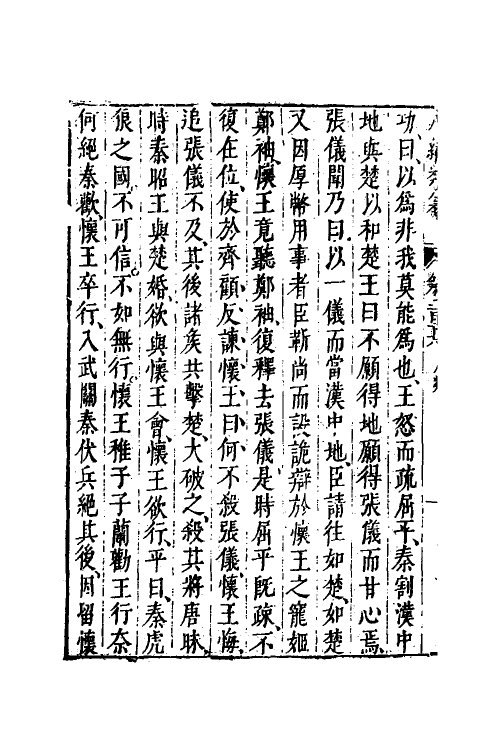 功曰以爲非我莫能爲也王怒而疏屈平秦割漢中
地與楚以和楚王曰不願得地願得張儀而甘心焉
張儀聞乃曰以一儀而當漢中地臣請往如楚如楚
又因厚幣用事者臣靳尚而設詭辯於懷王之寵姬
鄭袖懷王竟聽鄭袖復釋去張儀是時屈平既疎不
復在位使於齊顧反諫懷王曰何不殺張儀懷王悔
追張儀不及其後諸矦共擊楚大破之殺其將唐昧
時秦昭王與楚婚欲與懷王會懷王欲行平曰秦虎
狼之國不可信不如無行懷王稚子子蘭勸王行奈
何絕秦歡懷王卒行入武關秦伏兵絕其後因留懷